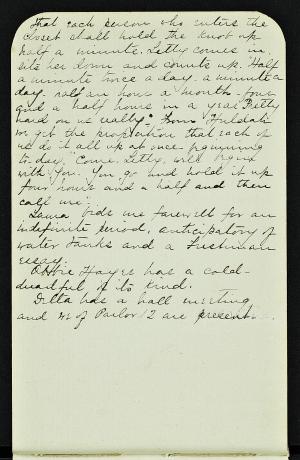 That each person who enters the
closet shall hold the knot up
half a minute. Letty comes in,
sits her down and counts up. "Half
a minute twice a day. a minute a
day. half an hour a month. four
and a half hours in a year. Pretty
hard on us really." From
we get the proposition that each of
us do it all up at once beginning
to-day. "Come, Letty, will begin
with you. You go and hold it up
four hours and a half and then
call me."
Laura bids me farewell for an
indefinite period, anticipatory of
water tanks and a Freshman
essay.
Abbie Hayes has a cold-
dreadful of its kind.
Delta has a hall meeting
and we of Parlor 12 are present.